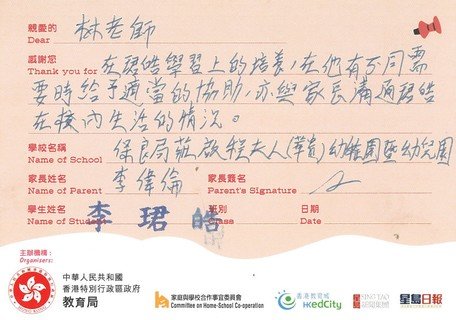 親愛的 林老師
Dear
感謝您 在珺皓學習上的培養，在他有不同需
Thank you for
要時給予適當的協助，亦與家長溝通珺皓
在校內生活的情況。
學校名稱 保良局莊啟程夫人(華貴)幼稚園暨幼兒園
Name of School
家長姓名 李偉倫 家長簽名
Name of Parent Parent's Signature
學生姓名 李珺皓 班別 日期
Name of Student Class Date
主辦機構：
Organisers:
中華人民共和國
香港特別行政區政府
教育局
家庭與學校合作事宜委員會
Committee on Home-School Co-operation
香港教育城
HKedCity
SING TAO
星島新聞集團
星島日報